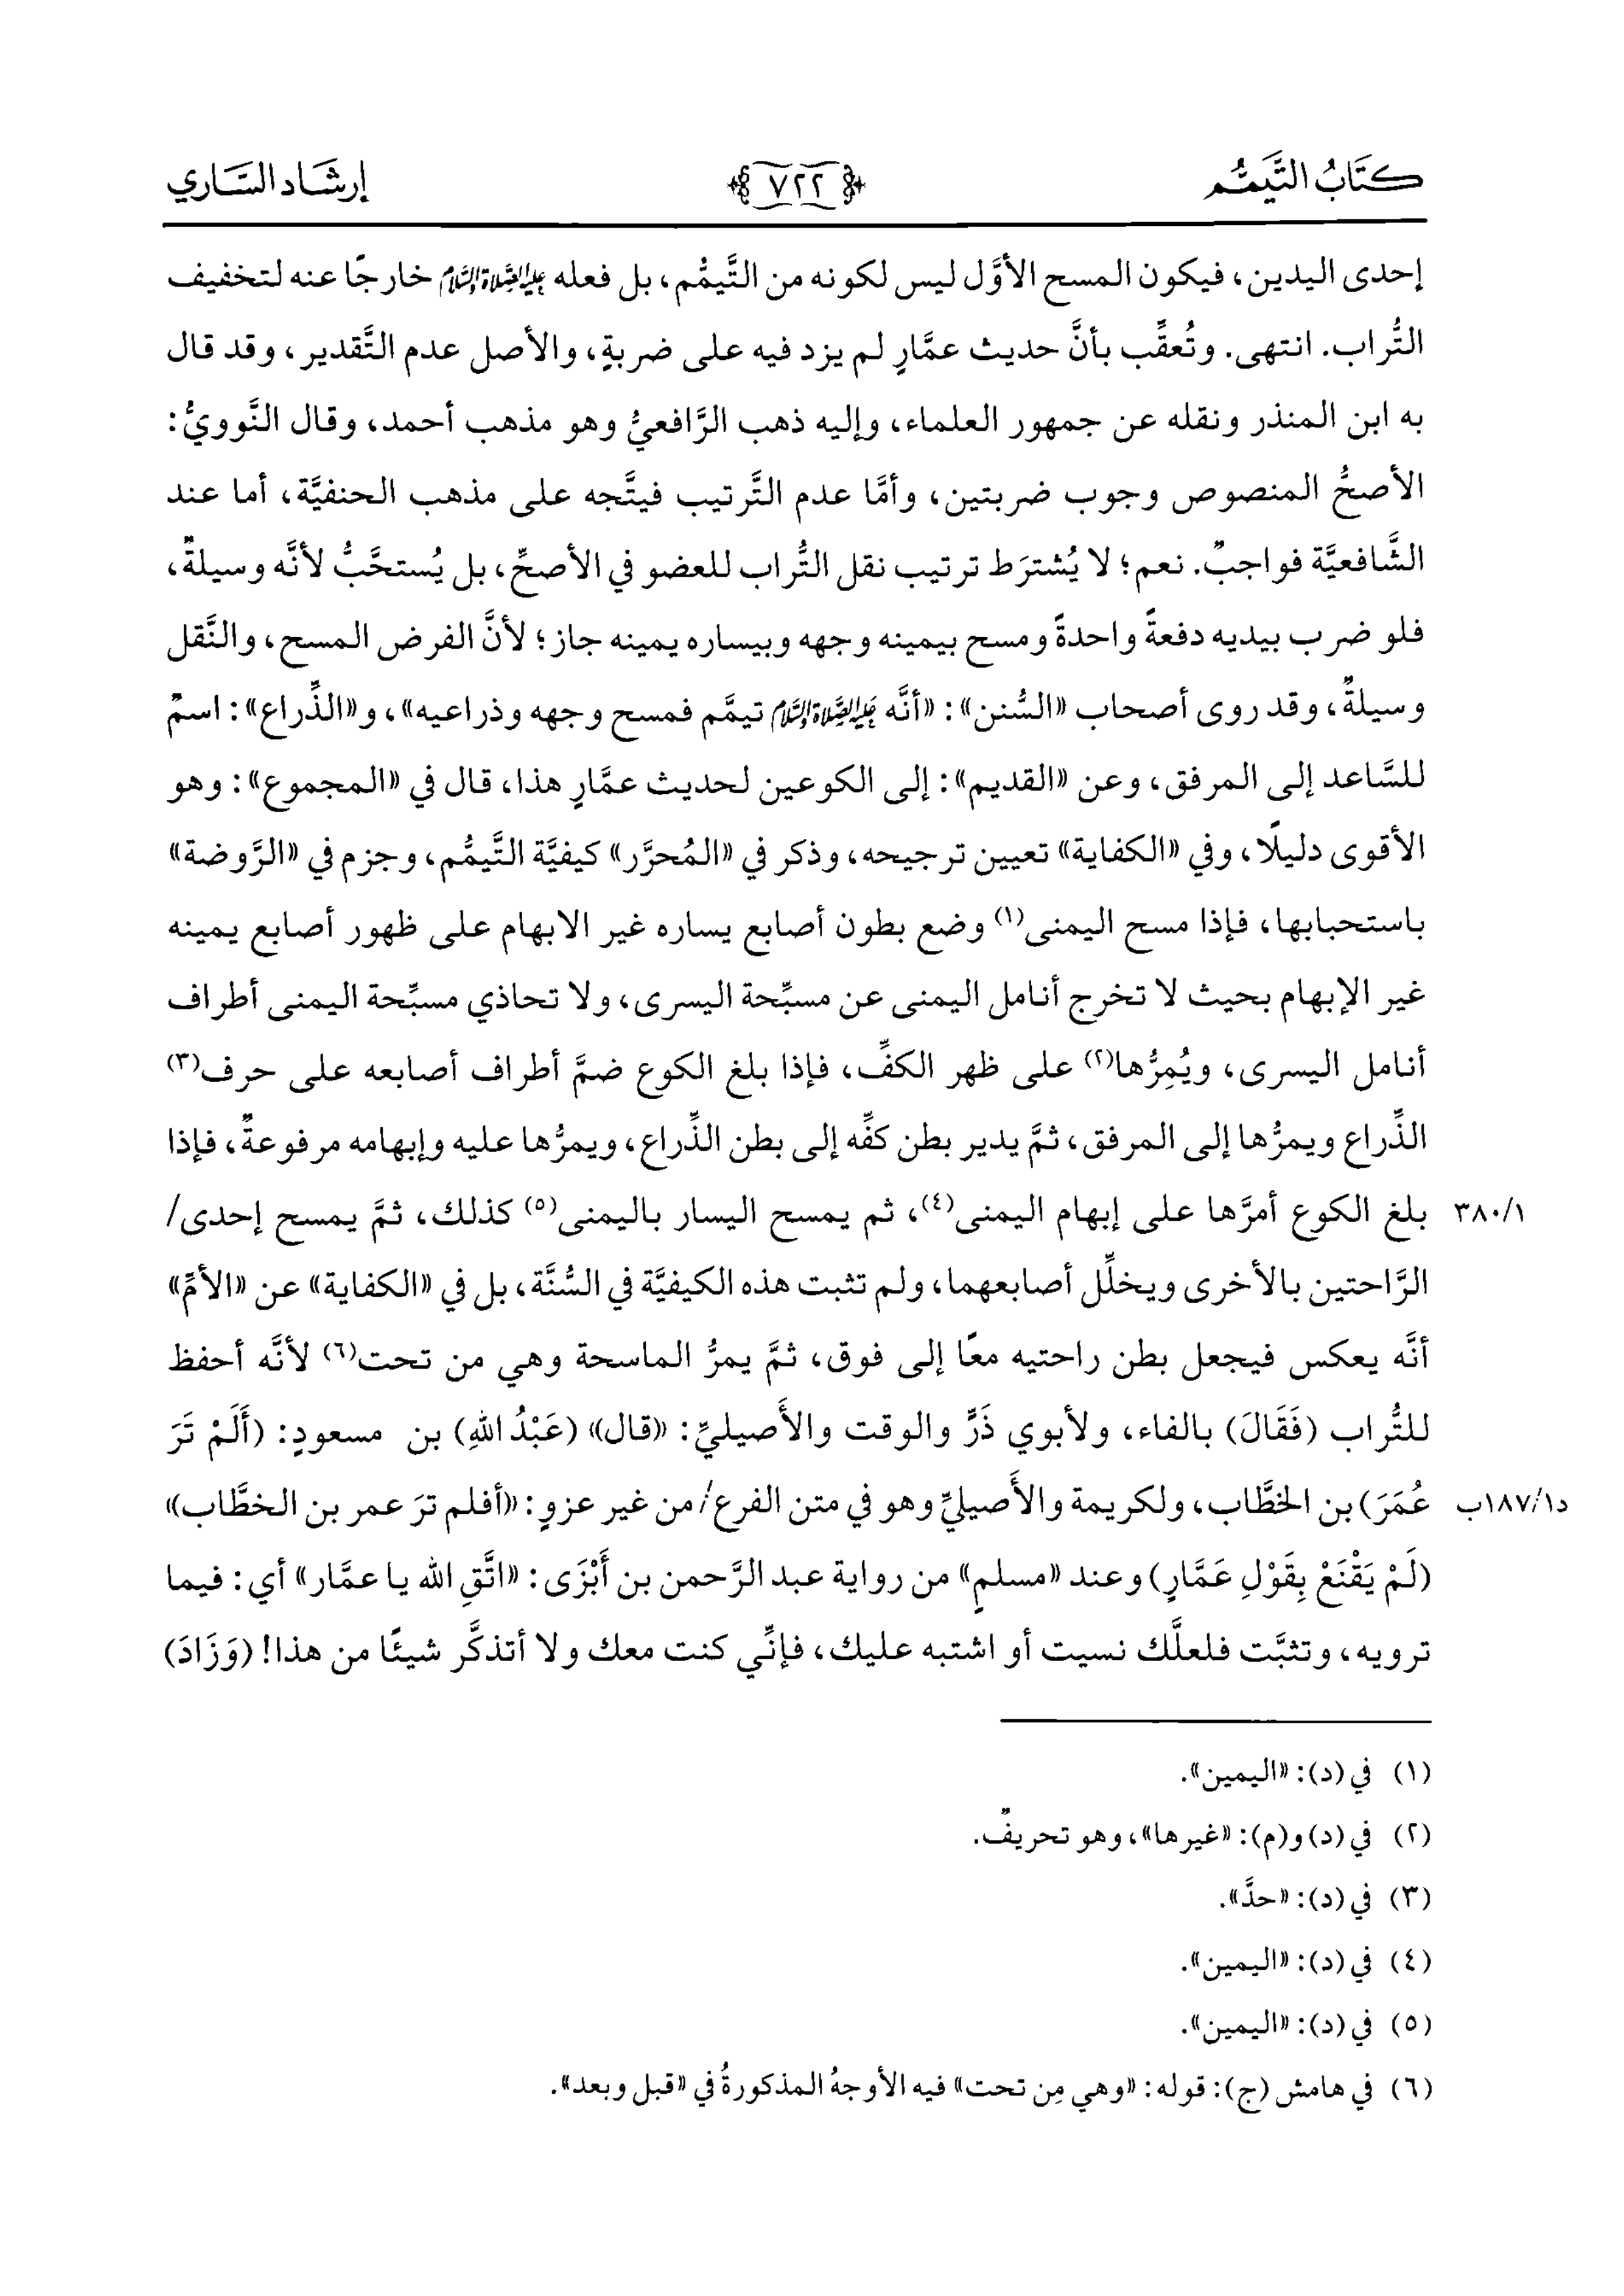 كتاب التَّيمُّم ٧٢٢ إرشاد السَّاري
إحدى اليدين، فيكون المسح الأوَّل ليس لكونه من التَّيمُّم، بل فعله عليه الصَّلاة والسَّلام خارجًا عنه لتخفيف
التُّراب. انتهى. وتُعقِّب بأنَّ حديث عمَّارٍ لم يزد فيه على ضربةٍ، والأصل عدم التَّقدير، وقد قال
به ابن المنذر ونقله عن جمهور العلماء، وإليه ذهب الرَّافعيُّ وهو مذهب أحمد، وقال النَّوويُّ:
الأصحُّ المنصوص وجوب ضربتين، وأمَّا عدم التَّرتيب فيتَّجه على مذهب الحنفيَّة، أما عند
الشَّافعيَّة فواجبٌ. نعم؛ لا يُشترَط ترتيب نقل التُّراب للعضو في الأصحِّ، بل يُستحَّبُّ لأنَّه وسيلةٌ،
فلو ضرب بيديه دفعةً واحدةً ومسح بيمينه وجهه وبيساره يمينه جاز؛ لأنَّ الفرض المسح، والنَّقل
وسيلةٌ، وقد روى أصحاب «السُّنن»: «أنَّه عليه الصَّلاة والسَّلام تيمَّم فمسح وجهه وذراعيه»، و«الذِّراع»: اسمٌ
للسَّاعد إلى المرفق، وعن «القديم»: إلى الكوعين لحديث عمَّارٍ هذا، قال في «المجموع»: وهو
الأقوى دليلًا، وفي «الكفاية» تعيين ترجيحه، وذكر في «المُحرَّر» كيفيَّة التَّيمُّم، وجزم في «الرَّوضة»
باستحبابها، فإذا مسح اليمنى(١) وضع بطون أصابع يساره غير الابهام على ظهور أصابع يمينه
غير الإبهام بحيث لا تخرج أنامل اليمنى عن مسبِّحة اليسرى، ولا تحاذي مسبِّحة اليمنى أطراف
أنامل اليسرى، ويُمِرُّها(٢) على ظهر الكفِّ، فإذا بلغ الكوع ضمَّ أطراف أصابعه على حرف(٣)
الذِّراع ويمرُّها إلى المرفق، ثمَّ يدير بطن كفِّه إلى بطن الذِّراع، ويمرُّها عليه وإبهامه مرفوعةٌ، فإذا
٣٨٠/١ بلغ الكوع أمرَّها على إبهام اليمنى(٤)، ثم يمسح اليسار باليمنى(٥) كذلك، ثمَّ يمسح إحدى/
الرَّاحتين بالأخرى ويخلِّل أصابعهما، ولم تثبت هذه الكيفيَّة في السُّنَّة، بل في «الكفاية» عن «الأمِّ»
أنَّه يعكس فيجعل بطن راحتيه معًا إلى فوق، ثمَّ يمرُّ الماسحة وهي من تحت(٦) لأنَّه أحفظ
للتُّراب (فَقَالَ) بالفاء، ولأبوي ذَرٍّ والوقت والأَصيليِّ: «قال» (عَبْدُ اللهِ) بن مسعودٍ: (أَلَمْ تَرَ
د١٨٧/١ب عُمَرَ) بن الخطَّاب، ولكريمة والأَصيليِّ وهو في متن الفرع/ من غير عزوٍ: «أفلم ترَ عمر بن الخطَّاب»
(لَمْ يَقْنَعْ بِقَوْلِ عَمَّارٍ) وعند «مسلمٍ» من رواية عبد الرَّحمن بن أَبْزَى: «اتَّقِ الله يا عمَّار» أي: فيما
ترويه، وتثبَّت فلعلَّك نسيت أو اشتبه عليك، فإنِّي كنت معك ولا أتذكَّر شيئًا من هذا! (وَزَادَ)
(١) في (د): «اليمين».
(٢) في (د) و(م): «غيرها»، وهو تحريفٌ.
(٣) في (د): «حدَّ».
(٤) في (د): «اليمين».
(٥) في (د): «اليمين».
(٦) في هامش (ج): قوله: «وهي مِن تحت» فيه الأوجهُ المذكورةُ في «قبل وبعد».